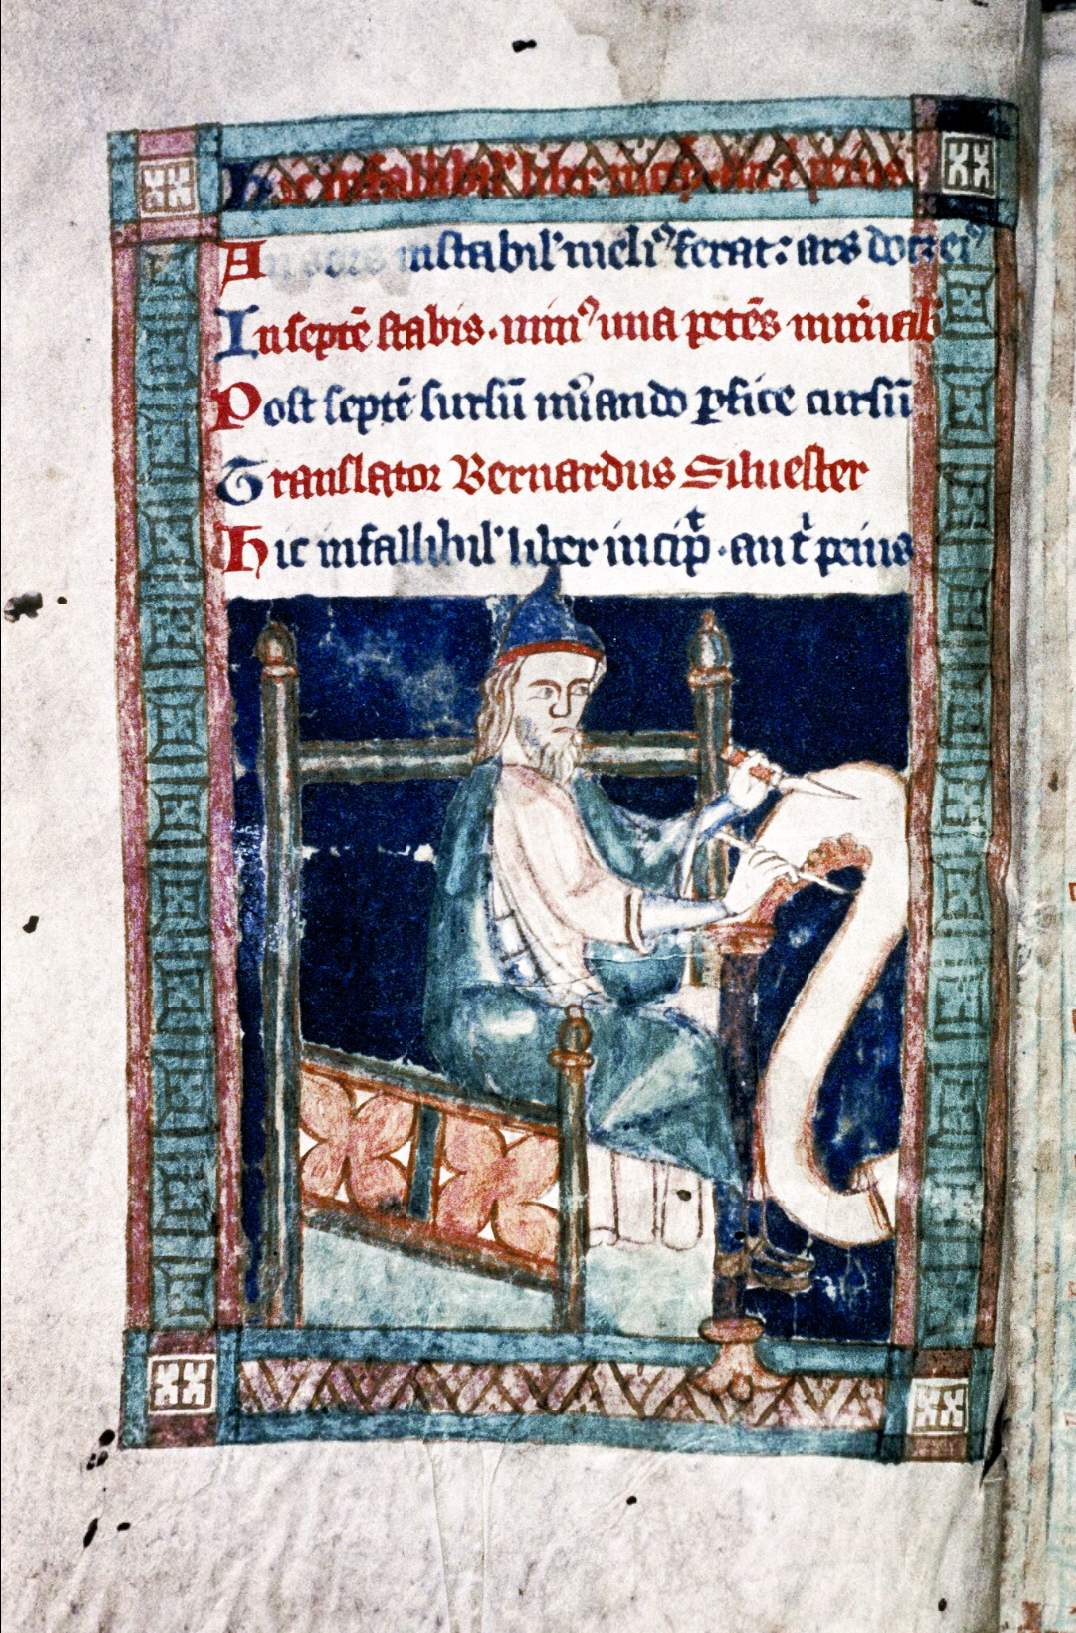 Hic infallibil' liber incip̄ aut p̄eius
An sors instabil' meli⁹ ferat: ars docet ei⁹
In septē stabis · min⁹ una petēs nu'icab'
Post septē sursū nu'ando ꝑfice cursū
Translator Bernardus Siluester
Hic infallibil' liber incip̄t · aut p̄eius